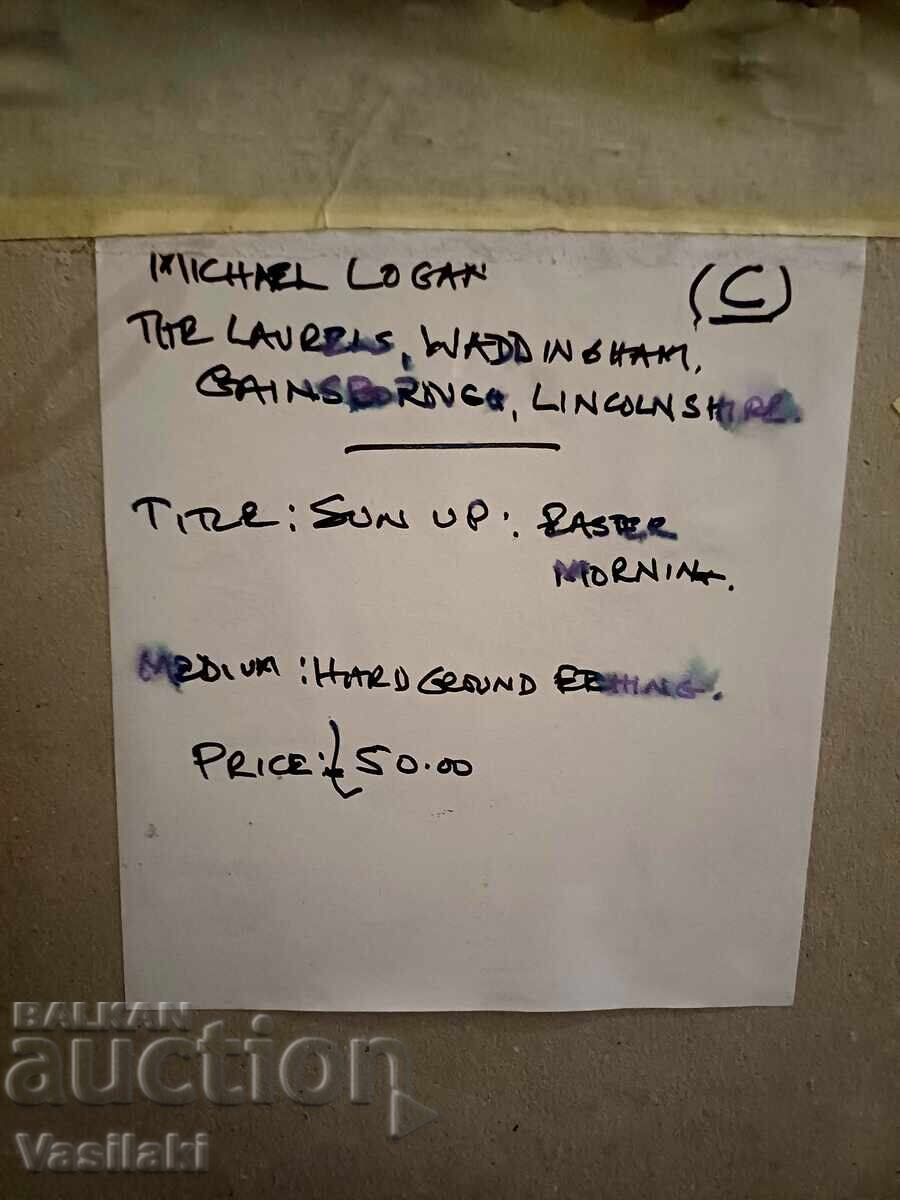 MICHAEL LOGAN
(C)
THE LAURELS, WADDINGHAM,
GAINSBOROUGH, LINCOLNSHIRE.
TITLE: SUN UP: EASTER
MORNING.
MEDIUM: HARD GROUND ETCHING.
PRICE: £50.00
BALKAN
auction
Vasilaki